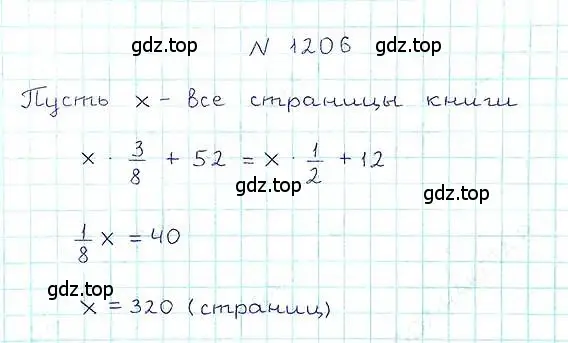 gdz.top N 1206 gdz.top
Пусть x - все страницы книги
x · 3/8 + 52 = x · 1/2 + 12
gdz.top gdz.top
1/8 x = 40
gdz.top
x = 320 (страниц)